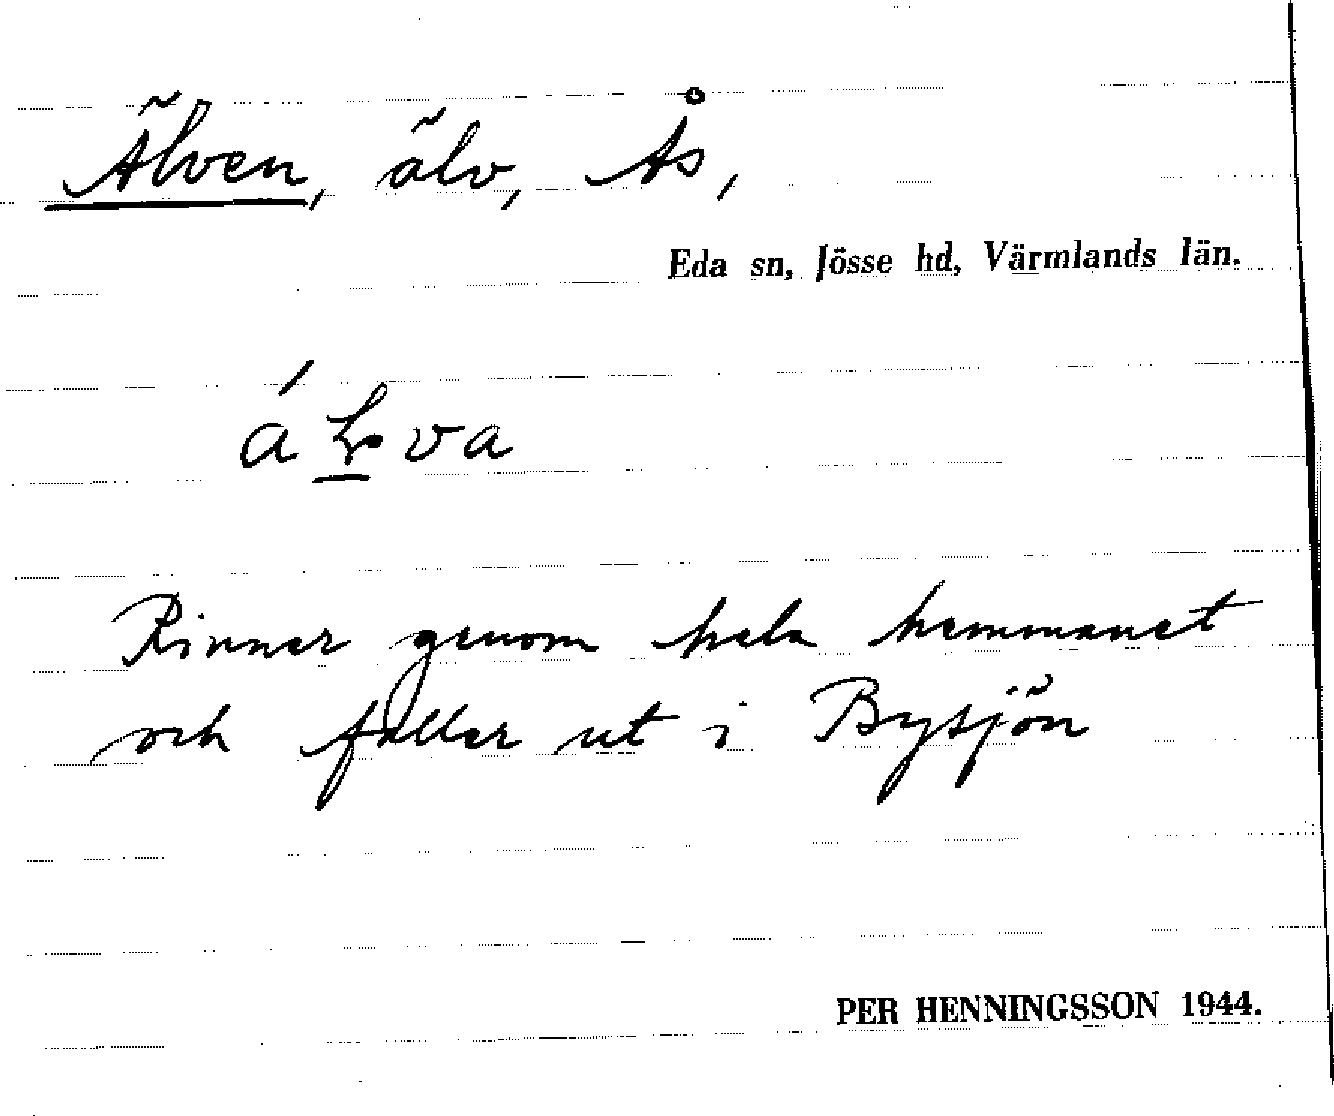 Älven, älv, Ås,
Eda sn, Jösse hd, Värmlands län.
Rinner genom hela hemmanet
och faller ut i Bysjön
PER HENNINGSSON 1944.